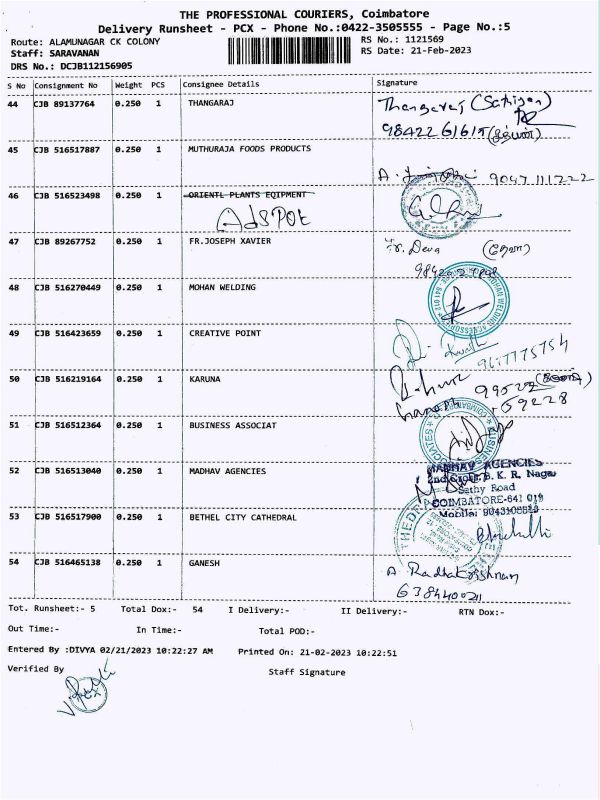 THE PROFESSIONAL COURIERS, Coimbatore
Delivery Runsheet - PCX - Phone No.:0422-3505555 - Page No.:5
Route: ALAMUNAGAR CK COLONY
Staff: SARAVANAN
DRS No.: DCJB112156905
RS No.: 1121569
RS Date: 21-Feb-2023
S No Consignment No Weight PCS Consignee Details Signature
44 CJB 89137764 0.250 1 THANGARAJ Thangaraj
9842261615
45 CJB 516517887 0.250 1 MUTHURAJA FOODS PRODUCTS
9047111722
46 CJB 516523498 0.250 1 ORIENTL PLANTS EQIPMENT
AdSPOt
47 CJB 89267752 0.250 1 FR.JOSEPH XAVIER Fr. Deva (தேவா)
48 CJB 516270449 0.250 1 MOHAN WELDING
49 CJB 516423659 0.250 1 CREATIVE POINT
50 CJB 516219164 0.250 1 KARUNA
59228
51 CJB 516512364 0.250 1 BUSINESS ASSOCIAT
52 CJB 516513040 0.250 1 MADHAV AGENCIES MADHAV AGENCIES
2nd Cross, B. K. R. Nagar
Sathy Road
COIMBATORE-641 019
Mobile:
53 CJB 516517900 0.250 1 BETHEL CITY CATHEDRAL
54 CJB 516465138 0.250 1 GANESH A. Radhakrishnan
Tot. Runsheet:- 5 Total Dox:- 54 I Delivery:- II Delivery:- RTN Dox:-
Out Time:- In Time:- Total POD:-
Entered By :DIVYA 02/21/2023 10:22:27 AM Printed On: 21-02-2023 10:22:51
Verified By Staff Signature